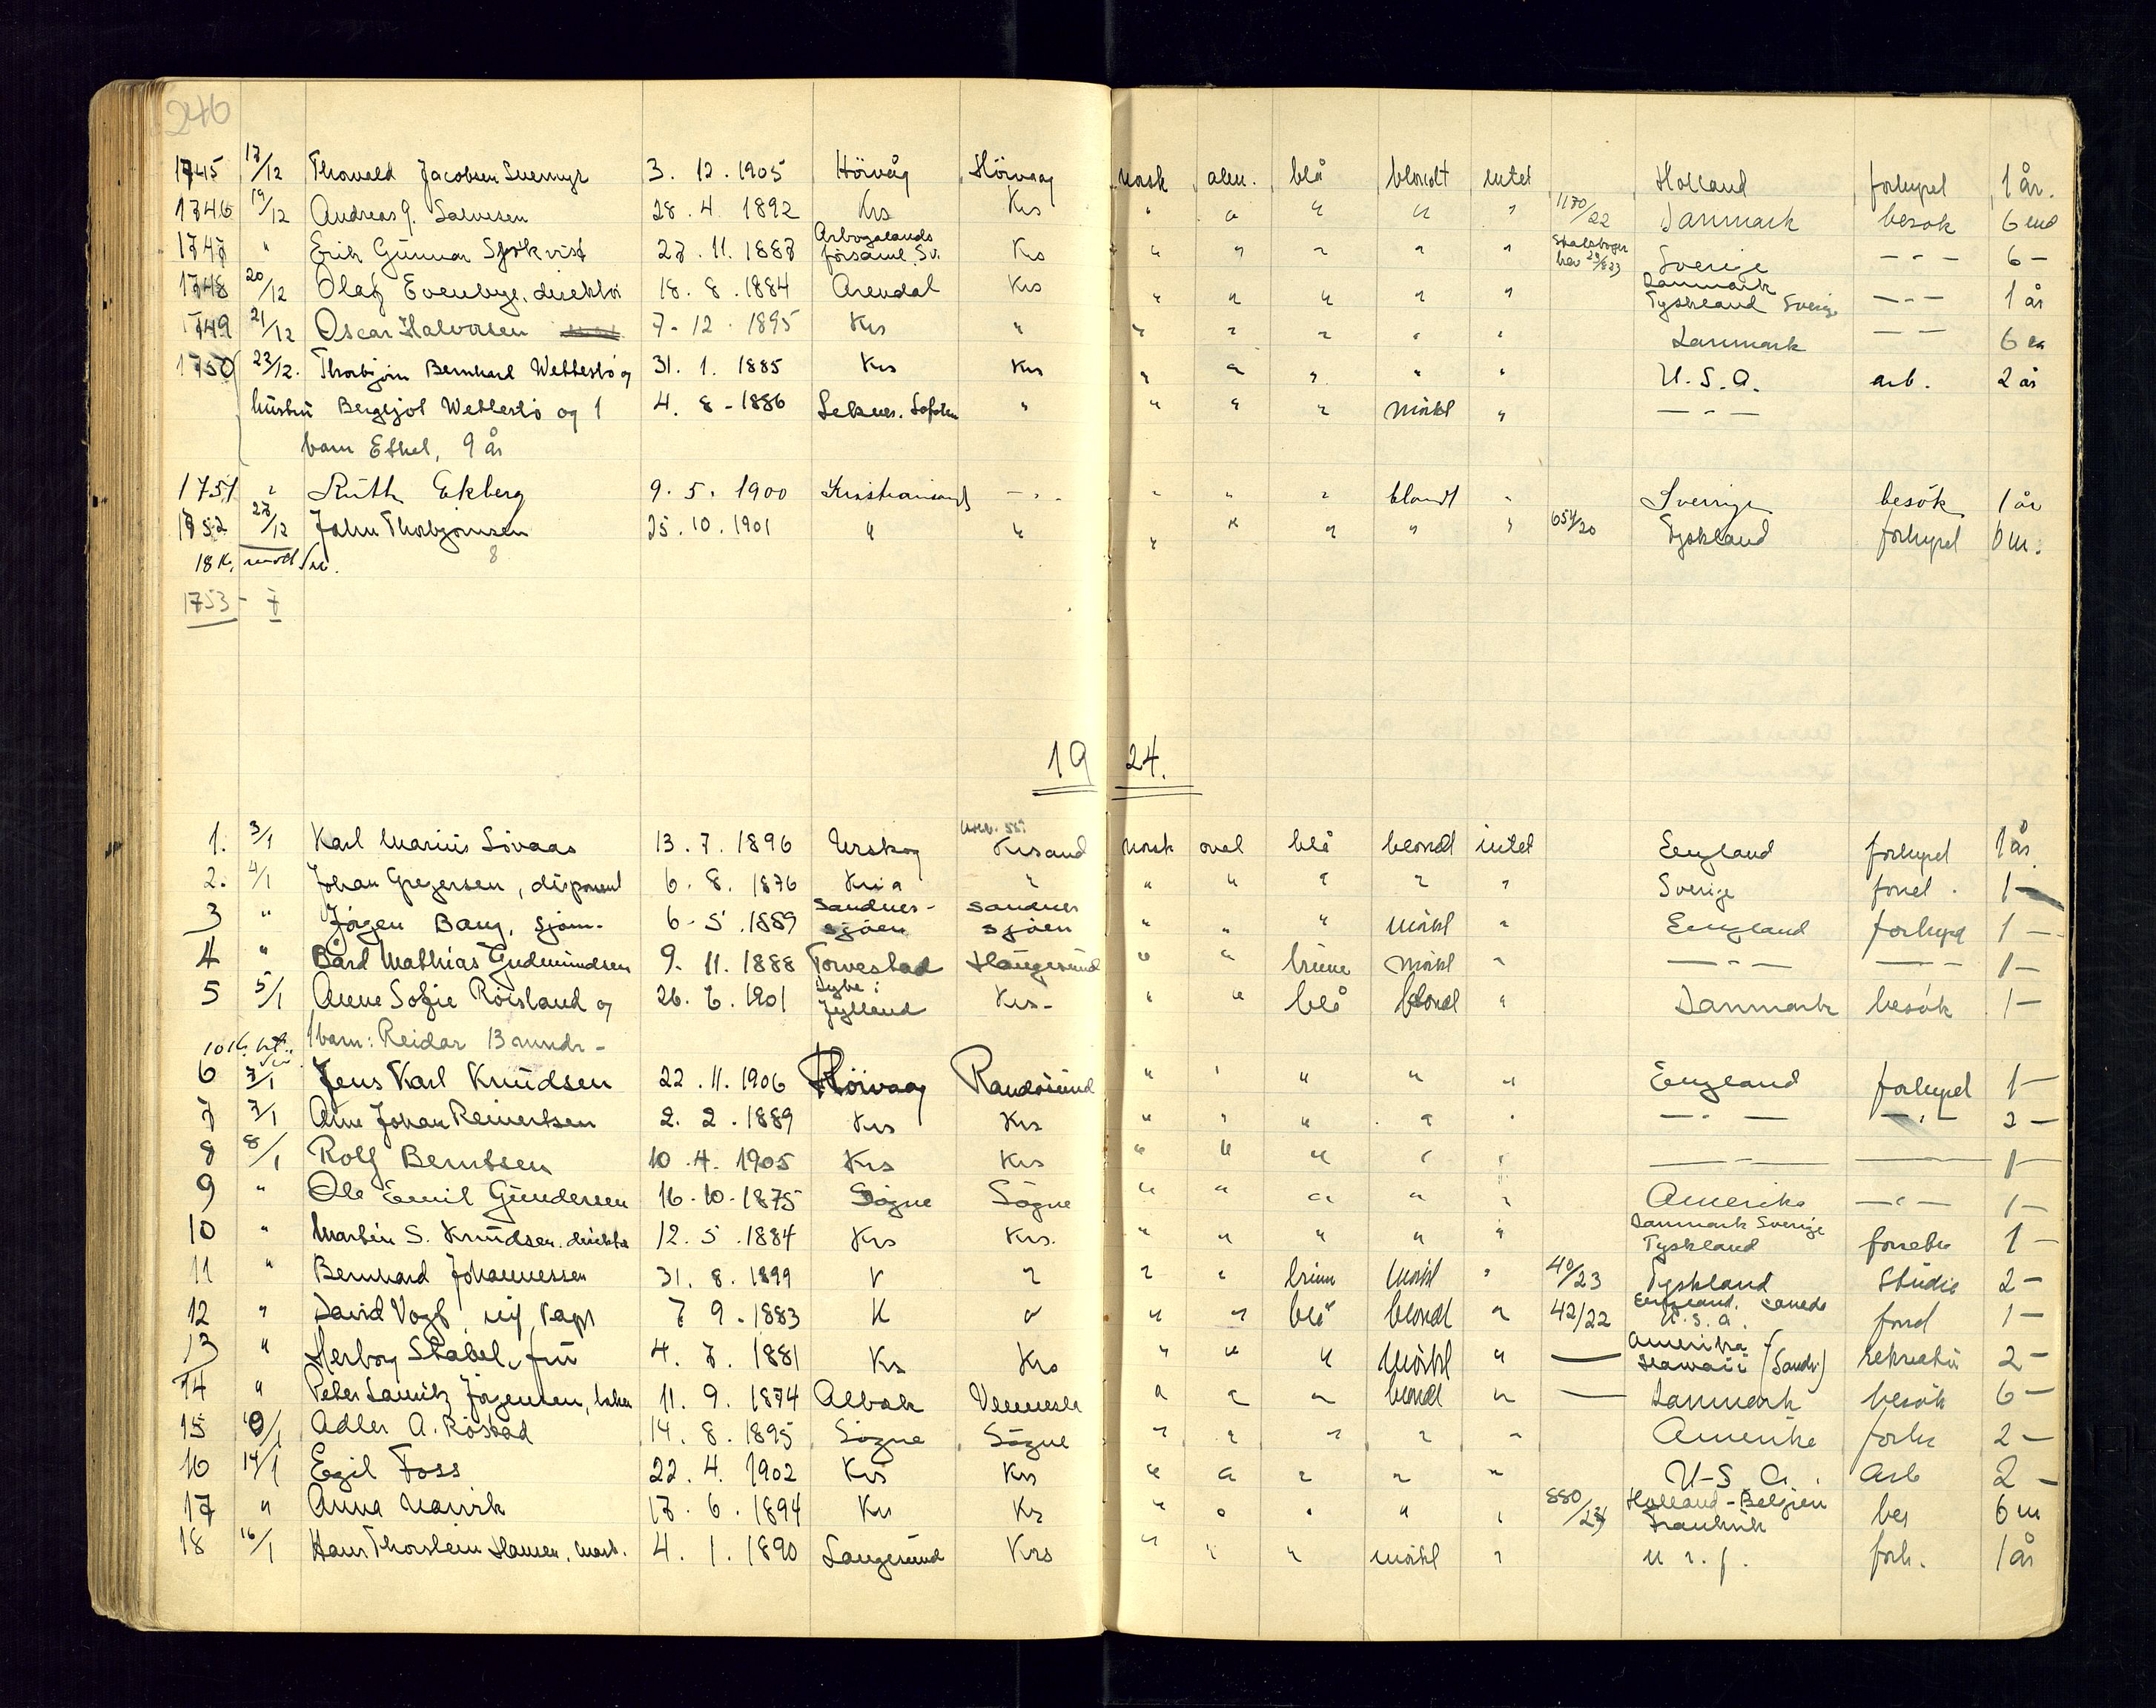 240
1745 17/12 Thorvald Jacobsen 3. 12. 1905 Hörvåg Hörvaag norsk alm. blå blondt intet Holland forhyret 1 år.
1746 19/12 Andreas J. Salvesen 28. 4. 1892 Krs Krs " " " " " 1170/22 Danmark besök 6 md
1747 " Erik Gunnar Sjökvist 27. 11. 1887 Arbogalands församl. Sv. Krs " " " " " Sverige — " — 6 —
1748 20/12 Olaf Evenbye, direktör 18. 8. 1884 Arendal Krs " " " " " Danmark Tyskland Sverige — " — 1 år
1749 21/12 Oscar Halvorsen 7. 12. 1895 Krs " " " " " " Danmark — " — 6 m
1750 22/12. Thorbjörn Bernhard Wettestö og 31. 1. 1885 Krs Krs " " " " " U.S.A. arb. 2 år
hustru Bergljot Wettestö og 1 4. 8 - 1886 Leknes. Lofoten " " " " mörkt " — " —
barn Ethel, 9 år
1751 " Ruth Ekberg 9. 5. 1900 Kristiansand — " — " " " blondt " Sverige besök 1 år
1752 27/12 John Thorbjörnsen 25. 10. 1901 " " " " " " " 654/20 Tyskland forhyret 6 m.
18 K.
8
1753 - 7
1924.
1. 3/1 Karl Marius Lövaas 13. 7. 1896 Urskog Krsand norsk oval blå blondt intet England forhyret 1 år
2. 4/1 Johan Gregersen, disponent 6. 8. 1876 Kria " " " " " " Sverige forret. 1 —
3 " Jörgen Bang, sjöm. 6 - 5. 1889 Sandnessjöen Sandnessjöen " " " mörkt " England forhyret 1 —
4 " Bård Mathias Gudmundsen 9. 11. 1888 Torvestad Haugesund " " brune mörkt " — " — — " — 1 —
5 5/1 Anne Sofie Röisland og 26. 6. 1901 Lybe: Jylland Krs - " " blå blondt " Danmark besök 1 —
1 barn: Reidar 13 mndr -
6 7/1 Jens Karl Knudsen 22. 11. 1906 Hörvaag Randösund " " " " " England forhyret 1 —
7 7/1 Arne Johan Reinertsen 2. 2. 1889 Krs Krs " " " " " — " — — " — 2 —
8 8/1 Rolf Berntsen 10. 4. 1905 Krs Krs " " " " " — — 1 —
9 " Ole Emil Gundersen 16 - 10 - 1875 Sögne Sögne " " " " " Amerika — " — 1 —
10 " Martin S. Knudsen. direktör 12. 5. 1884 Krs Krs. " " " " " Danmark Sverige Tyskland forretn 1 —
11 " Bernhard Johannessen 31. 8. 1899 " " " " brun mörkt " 40/23 Tyskland Studie 2 —
12 " David Vogt 7 9 - 1883 K " " " blå blondt " 42/22 England. Canada U.S.A. forret 1 —
13 " Herborg Stabel, fru 4. 7. 1881 Krs Krs " " " mörkt " — Amerika - Hawaii (Sandv.) rekreation 2 —
14 " Peter Lauritz Jörgensen, 11. 9. 1874 Albæk Vennesla " " " blondt " — Danmark besök 6 —
15 10/1 Adler A. Röstad 14. 8. 1895 Sögne Sögne " " " " " Amerika forh 2 —
16 14/1 Egil Foss 22. 4. 1902 Krs Krs " " " " " U-S. A. Arb 2 —
17 " Anna Narvik 17. 6. 1894 Krs Krs " " " " " 880/23 Holland - Belgien Frankrik bes 6 m
18 16/1 Hans Thorstein Hansen, mask. 4. 1. 1890 Langesund Krs " " " mörkt " forh. 1 år